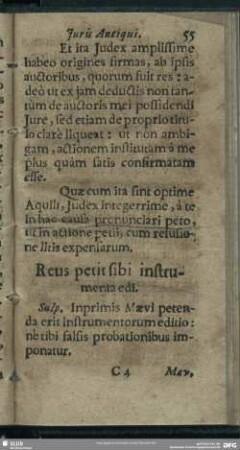 Juris Antiqui. 55
Et ita Judex amplissime
habeo origines firmas, ab ipsis
auctoribus, quorum fuit res: a-
deò ut ex jam deductis non tan-
tùm de auctoris mei possidendi
Jure, sed etiam de proprio titu-
lo clarè liqueat: ut non ambi-
gam, actionem institutam à me
plus quàm satis confirmatam
esse.
Quæ cum ita sint optime
Aquili, Judex integerrime, à te
in hac causa pronunciari peto,
ut in actione petii, cum refusio-
ne litis expensarum.
Reus petit sibi instru-
menta edi.
Sulp. Inprimis Mævi peten-
da erit instrumentorum editio:
ne tibi falsis probationibus im-
ponatur.
C 4 Mæv.
SLUB